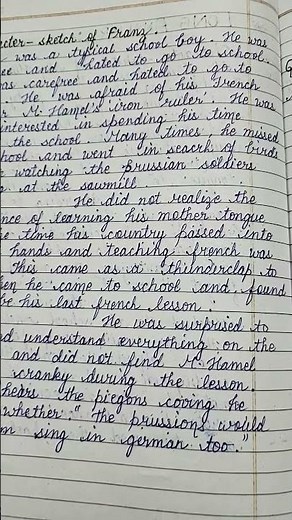 cter-sketch of Franz.
was a typical school boy. He was
ee and hated to go to school.
as carefree and hated to go to
. He was afraid of his French
r M. Hamel's iron ruler. He was
interested in spending his time
the school. Many times, he missed
hool and went in search of birds
watching the prussian soldiers
at the sawmill
He did not realize the
nce of learning his mother tongue
e time his country passed into
hands and teaching french was
This came as a thunderclap to
hen he came to school and found
be his last french lesson.
He was surprised to
d understand everything on the
and did not find M. Hamel
cranky during the lesson
hears the piegons coving he
whether " the prussions would
m sing in german too."